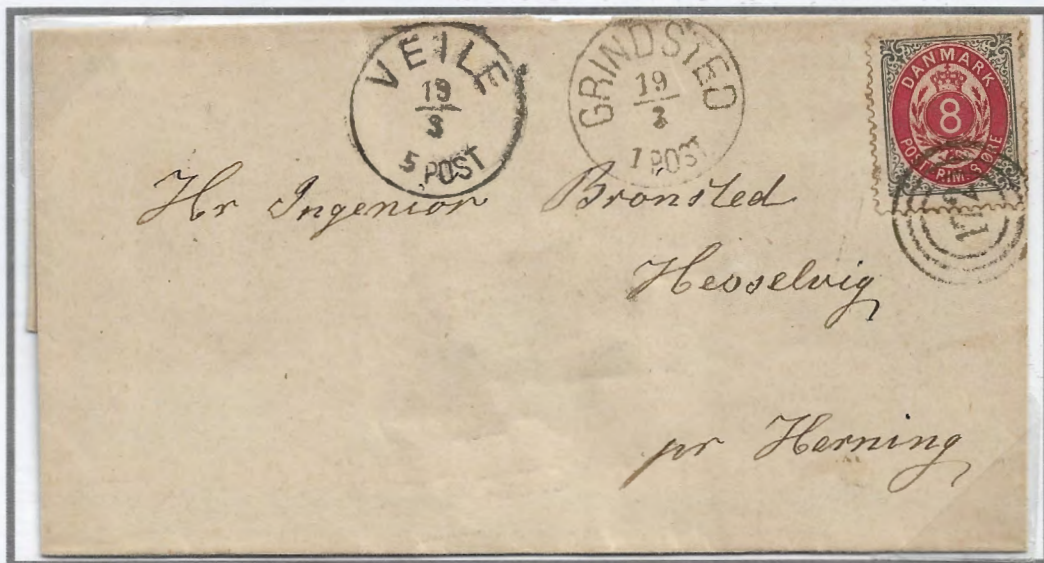 VEILE
19
3
5 POST
GRINDSTED
19
3
1 POST
DANMARK
8
POSTFRIM. 8 ØRE
Hr Ingeniør Brønsted
Hesselvig
pr Herning